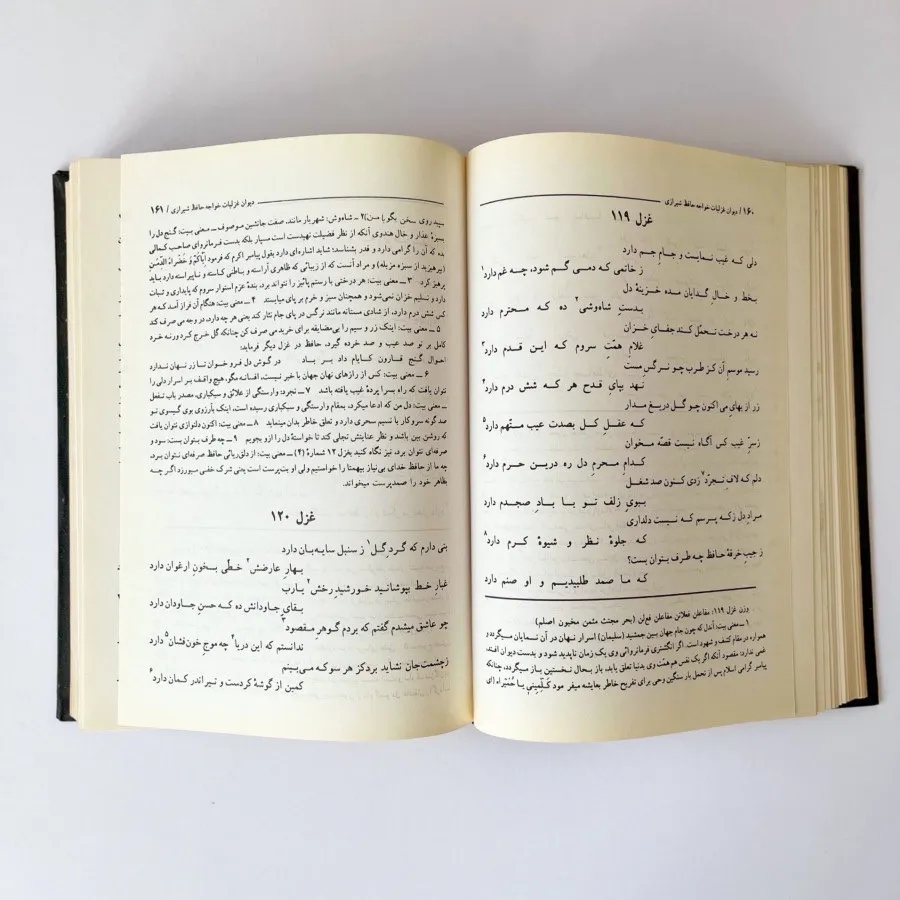 ۱۶۰ / دیوان غزلیات خواجه حافظ شیرازی
غزل ۱۱۹
دلی که غیب نمایست و جامِ جم دارد
ز خاتمی که دمی گم شود، چه غم دارد۱
بخط و خالِ گدایان مده خزینهٔ دل
بدستِ شاه‌وشی۲ ده که محترم دارد
نه هر درخت تحمّل کند جفایِ خزان
غلامِ همّتِ سروم که این قدم دارد۳
رسید موسمِ آن کز طرب چو نرگسِ مست
نهد بپایِ قدح هر که شش درم دارد۴
زر از بهایِ می اکنون چو گل دریغ مدار
که عقلِ کل بصدت عیب متّهم دارد۵
ز سرّ غیب کس آگاه نیست قصّه مخوان
کدام محرمِ دل ره درین حرم دارد۶
دلم که لافِ تجرّد۷ زدی کنون صد شغل
ببویِ زلفِ تو با بادِ صبحدم دارد
مرادِ دل ز که پرسم که نیست دلداری
که جلوهٔ نظر و شیوهٔ کرم دارد۸
ز جیبِ خرقهٔ حافظ چه طرف بتوان بست؟
که ما صمد طلبیدیم و او صنم دارد
وزن غزل ۱۱۹: مفاعلن فعلاتن مفاعلن فع‌لن (بحر مجتث مثمن مخبون اصلم)
۱ ــ معنی بیت: آندل که چون جام جهان بین جمشید (سلیمان) اسرار نهان در آن نمایان میگردد و
همواره در مقام کشف و شهود است، اگر انگشتری فرمانروائی وی یک زمان ناپدید شود و بدست دیوان افتد،
غمی ندارد؛ مقصود آنکه اگر یک نفس هم همّت وی بدنیا تعلق یابد، باز بحال نخستین باز میگردد، چنانکه
پیامبر گرامی اسلام پس از تحمل بار سنگین وحی برای تفریح خاطر بعایشه میفرمود کَلِّمینی یا حُمَیْراء (ای
دیوان غزلیات خواجه حافظ شیرازی / ۱۶۱
سپیدروی سخن بگو با من) ۲ــ شاه‌وش: شهریار مانند، صفت جانشین موصوف ــ معنی بیت: گنج دل را
بسبزهٔ عذار و خال هندوی آنکه از نظر فضیلت تهیدست است مسپار بلکه بدست فرمانروای صاحب کمالی
بده که آن را گرامی دارد و قدر بشناسد؛ شاید اشاره‌ای دارد بقول پیامبر اکرم که فرمود اِیّاکُمْ وَ خَضْراءَ الدِّمَنِ
(بپرهیزید از سبزه مزبله) و مراد آنست که از زیبائی که ظاهری آراسته و باطنی کاسته و ناپیراسته دارد باید
پرهیز کرد ۳ ــ معنی بیت: هر درختی با رستم پائیز را نتواند برد، بندهٔ عزم استوار سروم که پایداری و ثبات
دارد و تسلیم خزان نمی‌شود و همچنان سبز و خرم بر پای میایستد ۴ ــ معنی بیت: هنگام آن فراز آمد که هر
کس شش درم دارد، از شادی مستانه مانند نرگس در پای جام نثار کند یعنی هر چه دارد، در وجه می صرف کند
۵ ــ معنی بیت: اینک زر و سیم را بی‌مضایقه برای خرید می صرف کن چنانکه گل خردهٔ زر خود خرج کرد ورنه خرد
کامل بر تو صد عیب و صد خرده گیرد، حافظ در غزل دیگر فرماید:
احوال گنج قارون کایام داد بر باد در گوش دل فرو خوان تا زر نهان ندارد
۶ ــ معنی بیت: کس از رازهای نهان جهان با خبر نیست، افسانه مگو، هیچ واقف بر اسرار دلی را
نتوان یافت که راه بسرا پردهٔ غیب یافته باشد ۷ ــ تجرد: وارستگی از علائق و سبکباری، مصدر باب تفعل
ــ معنی بیت: دل من که ادعا میکرد، بمقام وارستگی و سبکباری رسیده است، اینک بآرزوی بوی گیسوی تو
صد گونه سر و کار با نسیم سحری دارد و تعلق خاطر بدان مینماید ۸ ــ معنی بیت: اکنون دلنوازی نتوان یافت
که روشن بین باشد و نظر عنایتش تجلی کند تا خواستهٔ دل را ازو بجویم ۹ ــ چه طرف بتوان بست: سود و
صرفه‌ای نتوان برد، نیز نگاه کنید بغزل ۱۲ شمارهٔ (۴) ــ معنی بیت: از دلق ریائی حافظ صرفه‌ای نتوان برد،
چه ما از حافظ خدای بی‌نیاز بیهمتا را خواستیم ولی او بت‌پرست است یعنی شرک خفی میورزد اگر چه
بظاهر خود را صمدپرست میخواند.
غزل ۱۲۰
بتی دارم که گردِ گل۱ ز سنبل سایه‌بان دارد
بهارِ عارضش۲ خطّی بخونِ ارغوان دارد
غبارِ خط بپوشانید خورشیدِ رخش۲ یا رب
بقایِ جاودانش ده که حسنِ جاودان دارد
چو عاشق میشدم گفتم که بردم گوهرِ مقصود۳
ندانستم که این دریا۴ چه موجِ خون‌فشان۵ دارد
ز چشمت جان نشاید برد کز هر سو که می‌بینم
کمین از گوشهٔ کردست و تیر اندر کمان دارد۶